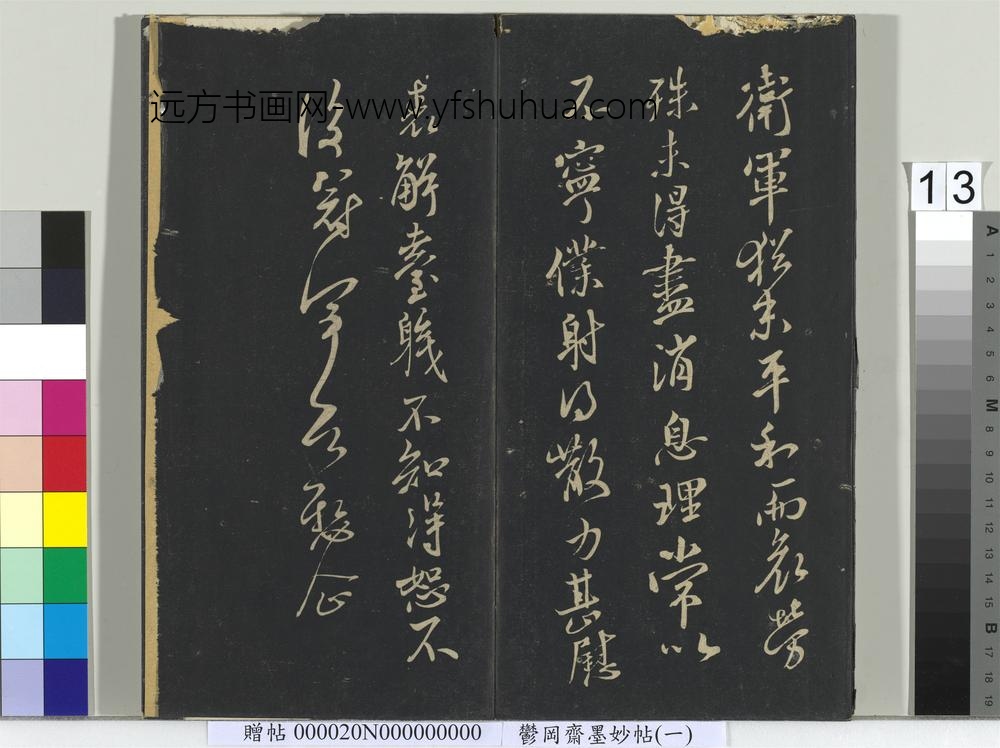 衛軍猶未平和而哀勞
殊未得盡消息理常以
不寧僕射得散力甚慰
表解臺職不知得恕不
後
念
远方书画网-www.yfshuhua.com
13
A
1
2
3
4
5
6
M
8
9
10
11
12
13
14
15
B
17
18
19
贈帖 000020N000000000 鬱岡齋墨妙帖(一)